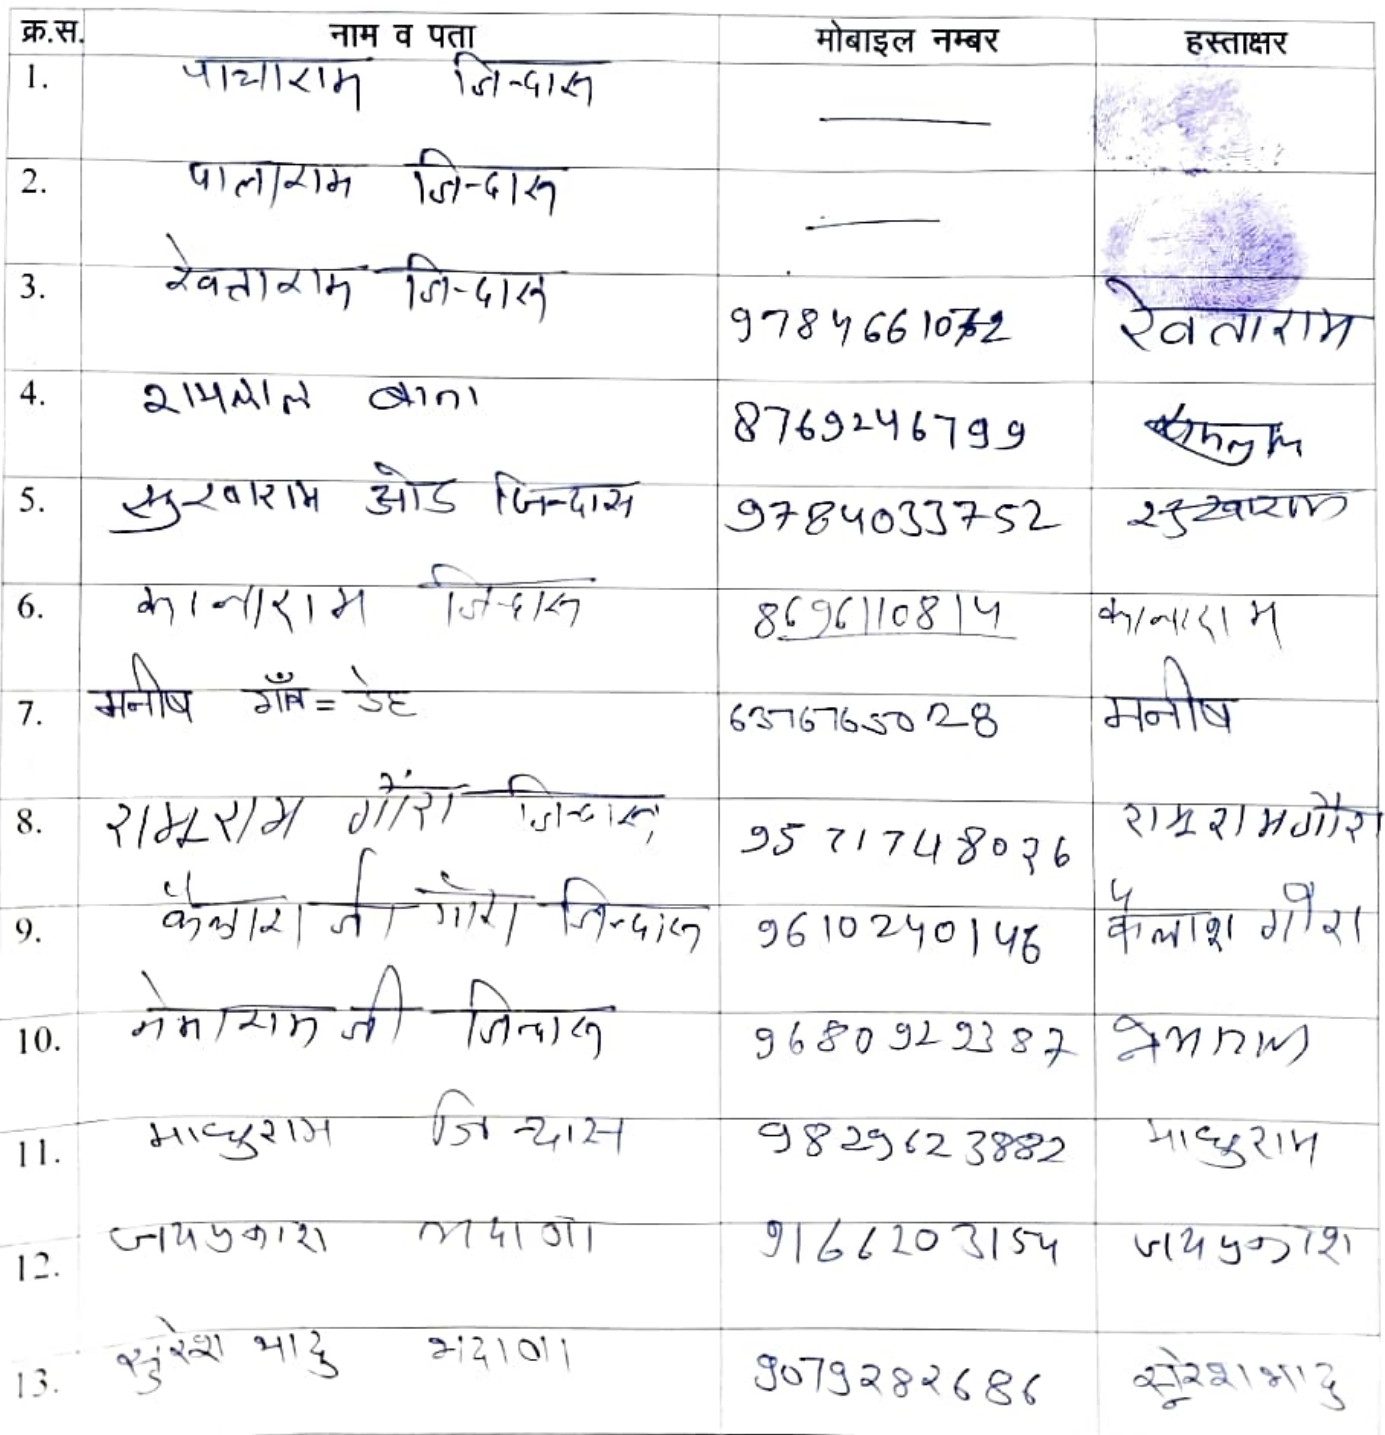 क्र.स. नाम व पता मोबाइल नम्बर हस्ताक्षर
1. पाचाराम जिन्दास
2. पालाराम जिन्दास
3. रेवताराम जिन्दास 9784661072 रेवताराम
4. रामलाल 8769246799
5. सुखाराम ओड जिन्दास 9784033752 सुखाराम
6. कानाराम जिन्दास 8696110814 कानाराम
7. मनीष गाँव = डेह 6376765028 मनीष
8. रामूराम गौरा जिन्दास 9571748026 रामूराम गौरा
9. कैलाश जी गौरा जिन्दास 9610240146 कैलाश गौरा
10. नेमाराम जी जिन्दास 9680929387
11. माधुराम जिन्दास 9829623882 माधुराम
12. जयप्रकाश भदाणा 9166203154 जयप्रकाश
13. सुरेश भादु भदाणा 9079282686 सुरेश भादु